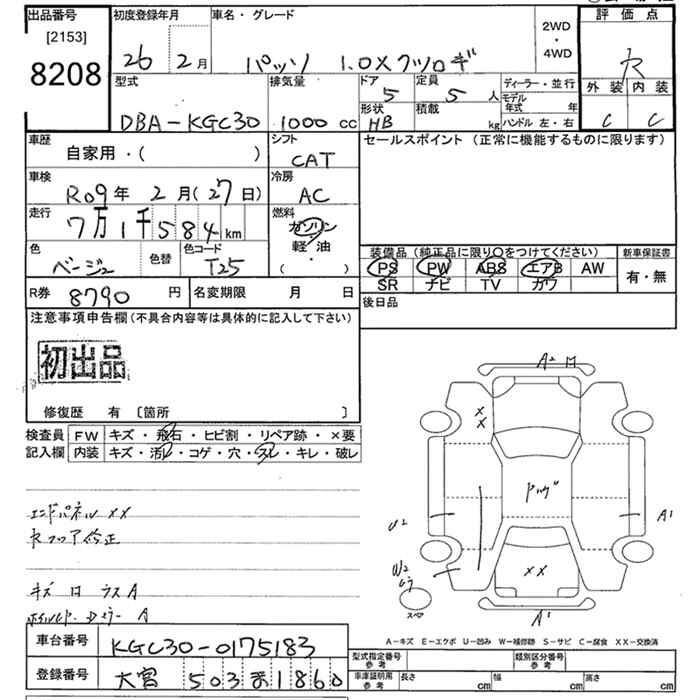 出品番号 初度登録年月 車名・グレード 2WD・4WD 評価点
[2153]
8208
26年 2月 パッソ 1.0X クツロギ R
型式 排気量 ドア 定員 ディーラー・並行 外装 内装
DBA-KGC30 1000 cc 5 5 人 モデル年式 年 C C
形状 HB 積載 kg ハンドル 左・右
車歴 シフト セールスポイント (正常に機能するものに限ります)
自家用・( ) CAT
車検 冷房
R09年 2月(27日) AC
走行 燃料
7万1千584km ガソリン・軽油・( )
色 色替 色コード 装備品(純正品に限り○をつけてください) 新車保証書
ベージュ T25 PS PW ABS エアB AW 有・無
SR ナビ TV ガワ
R券 8790 円 名変期限 月 日 後日品
注意事項申告欄(不具合内容等は具体的に記入して下さい)
初出品
修復歴 有 [箇所 ]
検査員記入欄 FW キズ・飛石・ヒビ割・リペア跡・×要
内装 キズ・汚レ・コゲ・穴・スレ・キレ・破レ
A2
XX
U2
A1
エンドパネル XX
W2
XX
スペア
A1
A-キズ E-エクボ U-凹み W-補修跡 S-サビ C-腐食 XX-交換済
車台番号 KGC30-0175183
型式指定番号 参考 類別区分番号 参考
登録番号 大宮 503 ま 1860
車庫証明用 参考 長さ cm 幅 cm 高さ cm